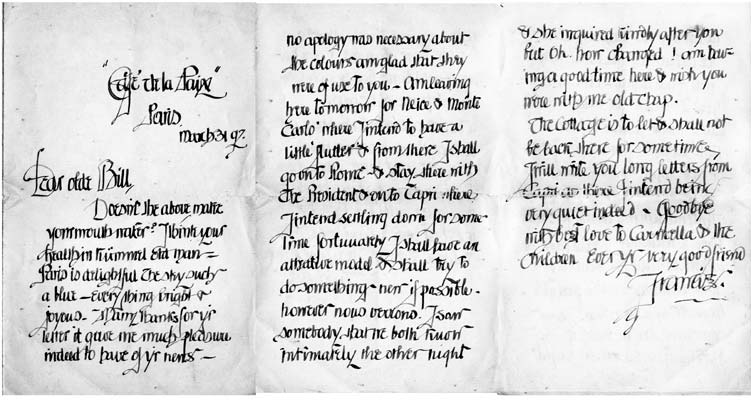 "Café de la Paix"
Paris,
March 31 97.
Dear olde Bill,
Doesn't the above make
your mouth water? I drink your
health in rummel Old man =
Paris is delightful The sky such
a blue — Every thing bright &
joyous - Many thanks for yr
letter it gave me much pleasure
indeed to have of yr news —
no apology was necessary about
the colours am glad that they
were of use to you - Am leaving
here tomorrow for Neice & Monte
Carlo where I intend to have a
little flutter & from there I shall
go on to Rome & stay there with
The President & on to Capri where
I intend settling down for some
time fortunately I shall have an
attrative model & shall try to
do something - new if possible -
however nous verrons. I saw
somebody that we both know
intimately the other night
& she inquired kindly after you
but Oh. how changed! am hav-
ing a good time here & wish you
were with me old chap.
The Cottage is to let & shall not
be back there for sometime
I will write you long letters from
Capri as there I intend being
very quiet indeed - Goodbye
with best love to & the
children Ever yr very good friend
Francis.